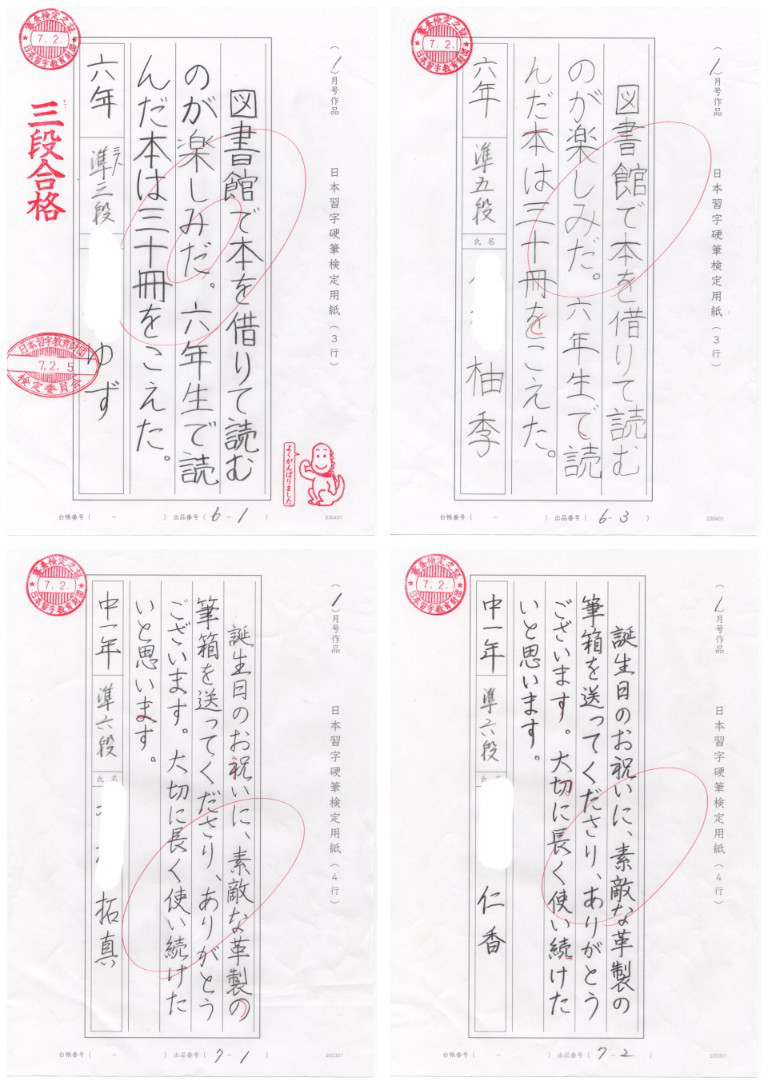 審査検定之証
7.2.
日本習字教育財団
(1)月号作品
日本習字硬筆検定用紙(3行)
図書館で本を借りて読む
のが楽しみだ。六年生で読
んだ本は三十冊をこえた。
六年
準三段
ゆず
三段合格
日本習字教育財団
7.2.5
検定委員会
よくがんばりました
台帳番号( - ) 出品番号(6-1)
230401
審査検定之証
7.2.
日本習字教育財団
(1)月号作品
日本習字硬筆検定用紙(3行)
図書館で本を借りて読む
のが楽しみだ。六年生で読
んだ本は三十冊をこえた。
六年
準五段
氏名
柚季
台帳番号( - ) 出品番号(6-3)
230401
審査検定之証
7.2.
日本習字教育財団
(1)月号作品
日本習字硬筆検定用紙(4行)
誕生日のお祝いに、素敵な革製の
筆箱を送ってくださり、ありがとう
ございます。大切に長く使い続けた
いと思います。
中一年
準六段
氏名
拓真
台帳番号( - ) 出品番号(7-1)
審査検定之証
7.2.
日本習字教育財団
(1)月号作品
日本習字硬筆検定用紙(4行)
誕生日のお祝いに、素敵な革製の
筆箱を送ってくださり、ありがとう
ございます。大切に長く使い続けた
いと思います。
中一年
準六段
氏名
仁香
台帳番号( - ) 出品番号(7-2)